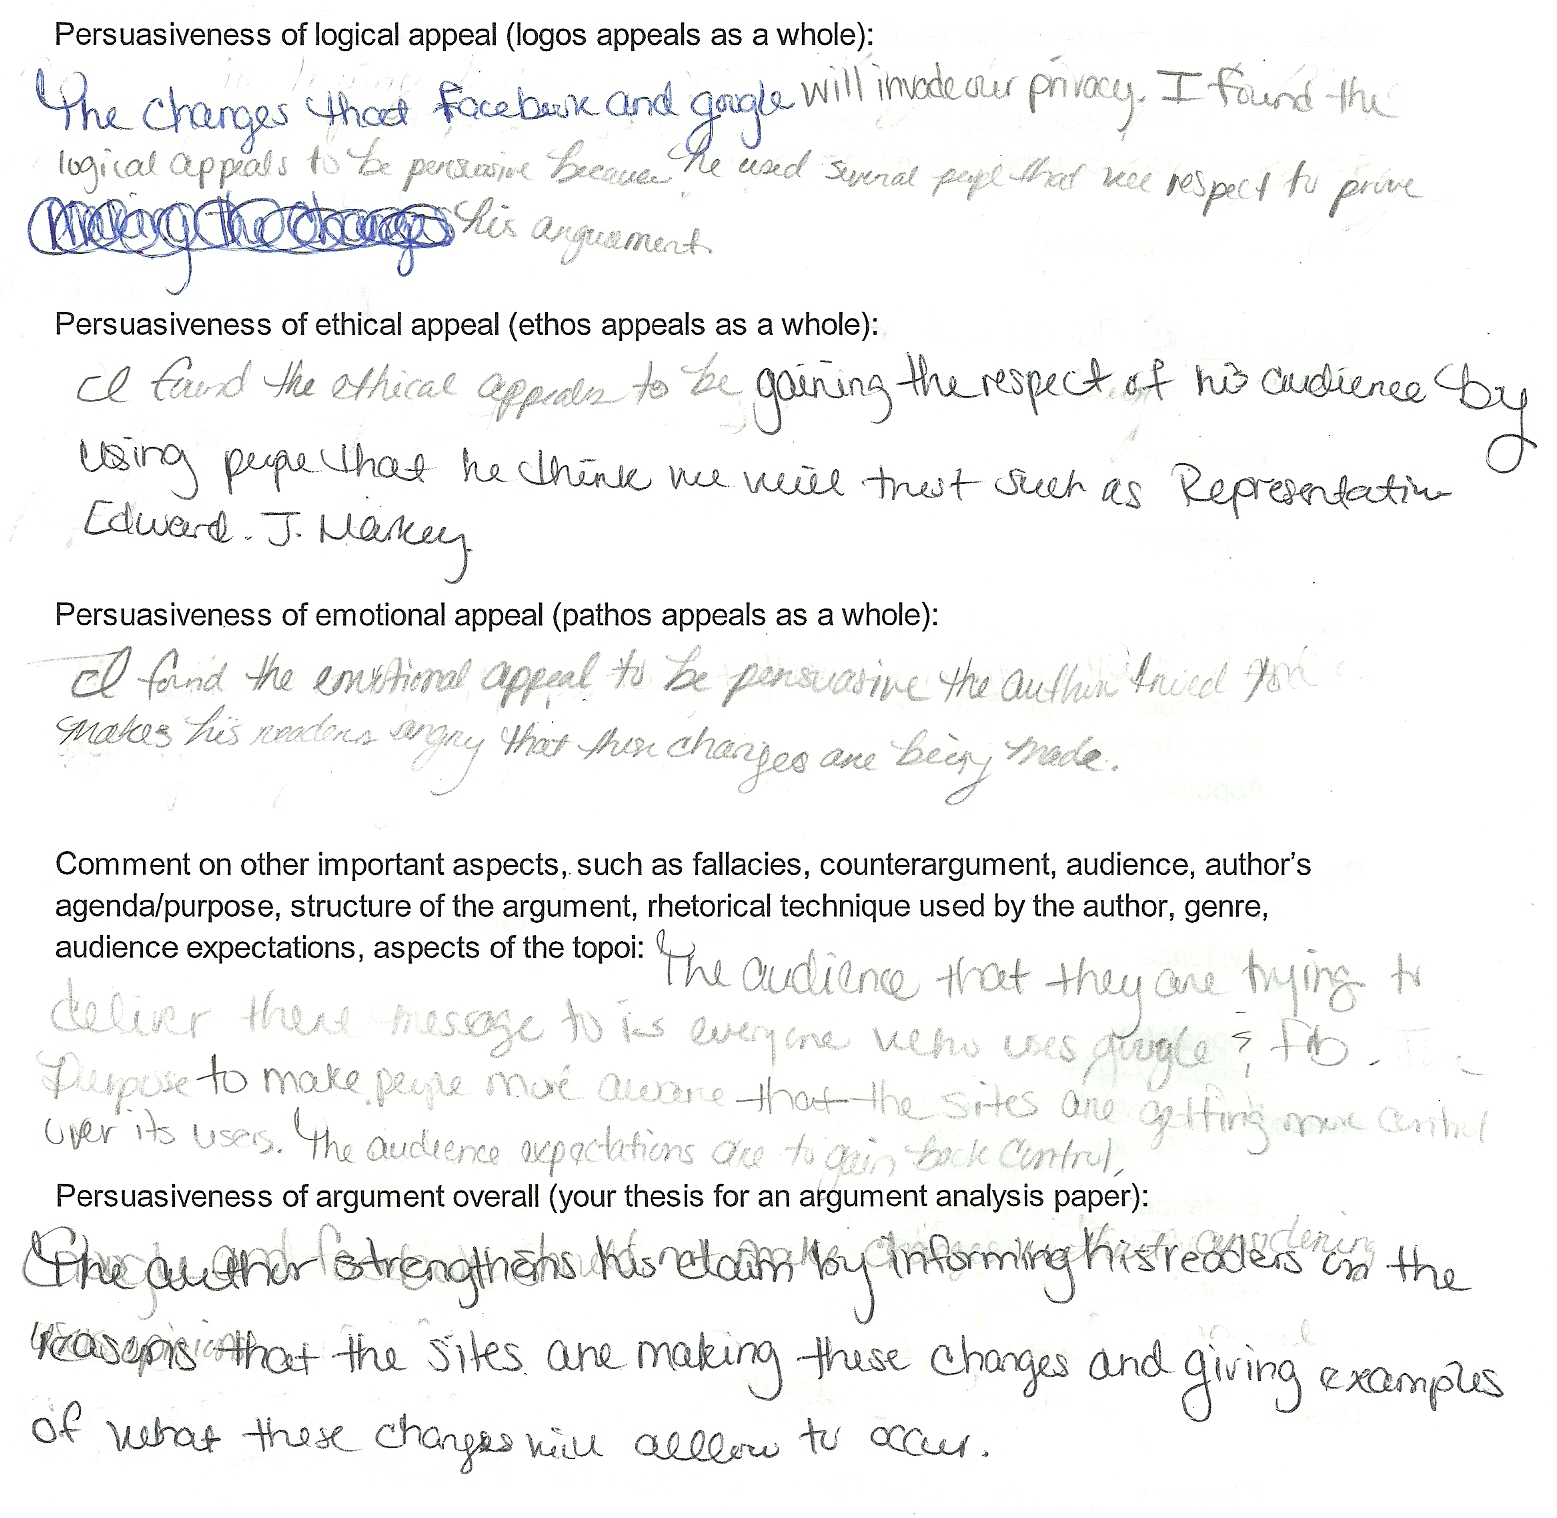 Persuasiveness of logical appeal (logos appeals as a whole):
The changes that Facebook and google will invade our privacy. I found the
logical appeals to be persuasive because he used several peopl that we respect to prove
making the changes his arguement.
Persuasiveness of ethical appeal (ethos appeals as a whole):
I found the ethical appeals to be gaining the respect of his audience by
using people that he think we will trust such as Representative
Edward. J. Markey
Persuasiveness of emotional appeal (pathos appeals as a whole):
I found the emotional appeal to be persuasive the author tried
makes his readers angry that these changes are being made.
Comment on other important aspects, such as fallacies, counterargument, audience, author's
agenda/purpose, structure of the argument, rhetorical technique used by the author, genre,
audience expectations, aspects of the topoi: The audience that they are trying to
deliver there message to is everyone who uses google & fb.
Purpose to make people more aware that the sites are getting more control
over its users. The audience expectations are to gain back control,
Persuasiveness of argument overall (your thesis for an argument analysis paper):
The author strengthens his claim by informing his readers on the
reasons that the sites are making these changes and giving examples
of what these changes will alllow to occur.